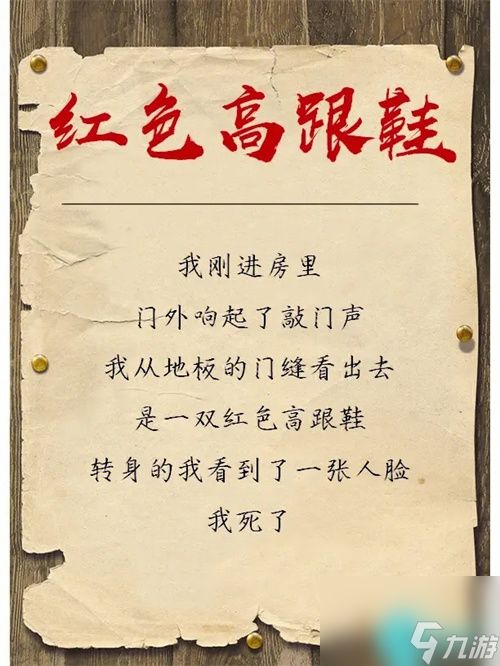 红色高跟鞋
我刚进房里
门外响起了敲门声
我从地板的门缝看出去
是一双红色高跟鞋
转身的我看到了一张人脸
我死了
九游